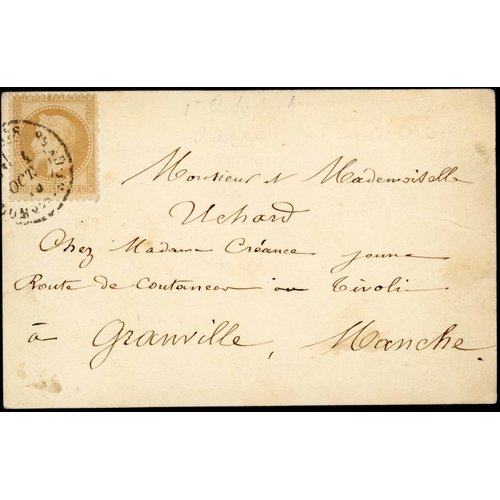 EMPIRE FRANÇAIS
OCT
Monsieur et Mademoiselle
Uchard
Chez Madame Créance jeune
Route de Coutances ou Tivoli
à Granville, Manche.